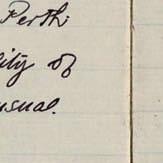 Perth
ility of
usual.